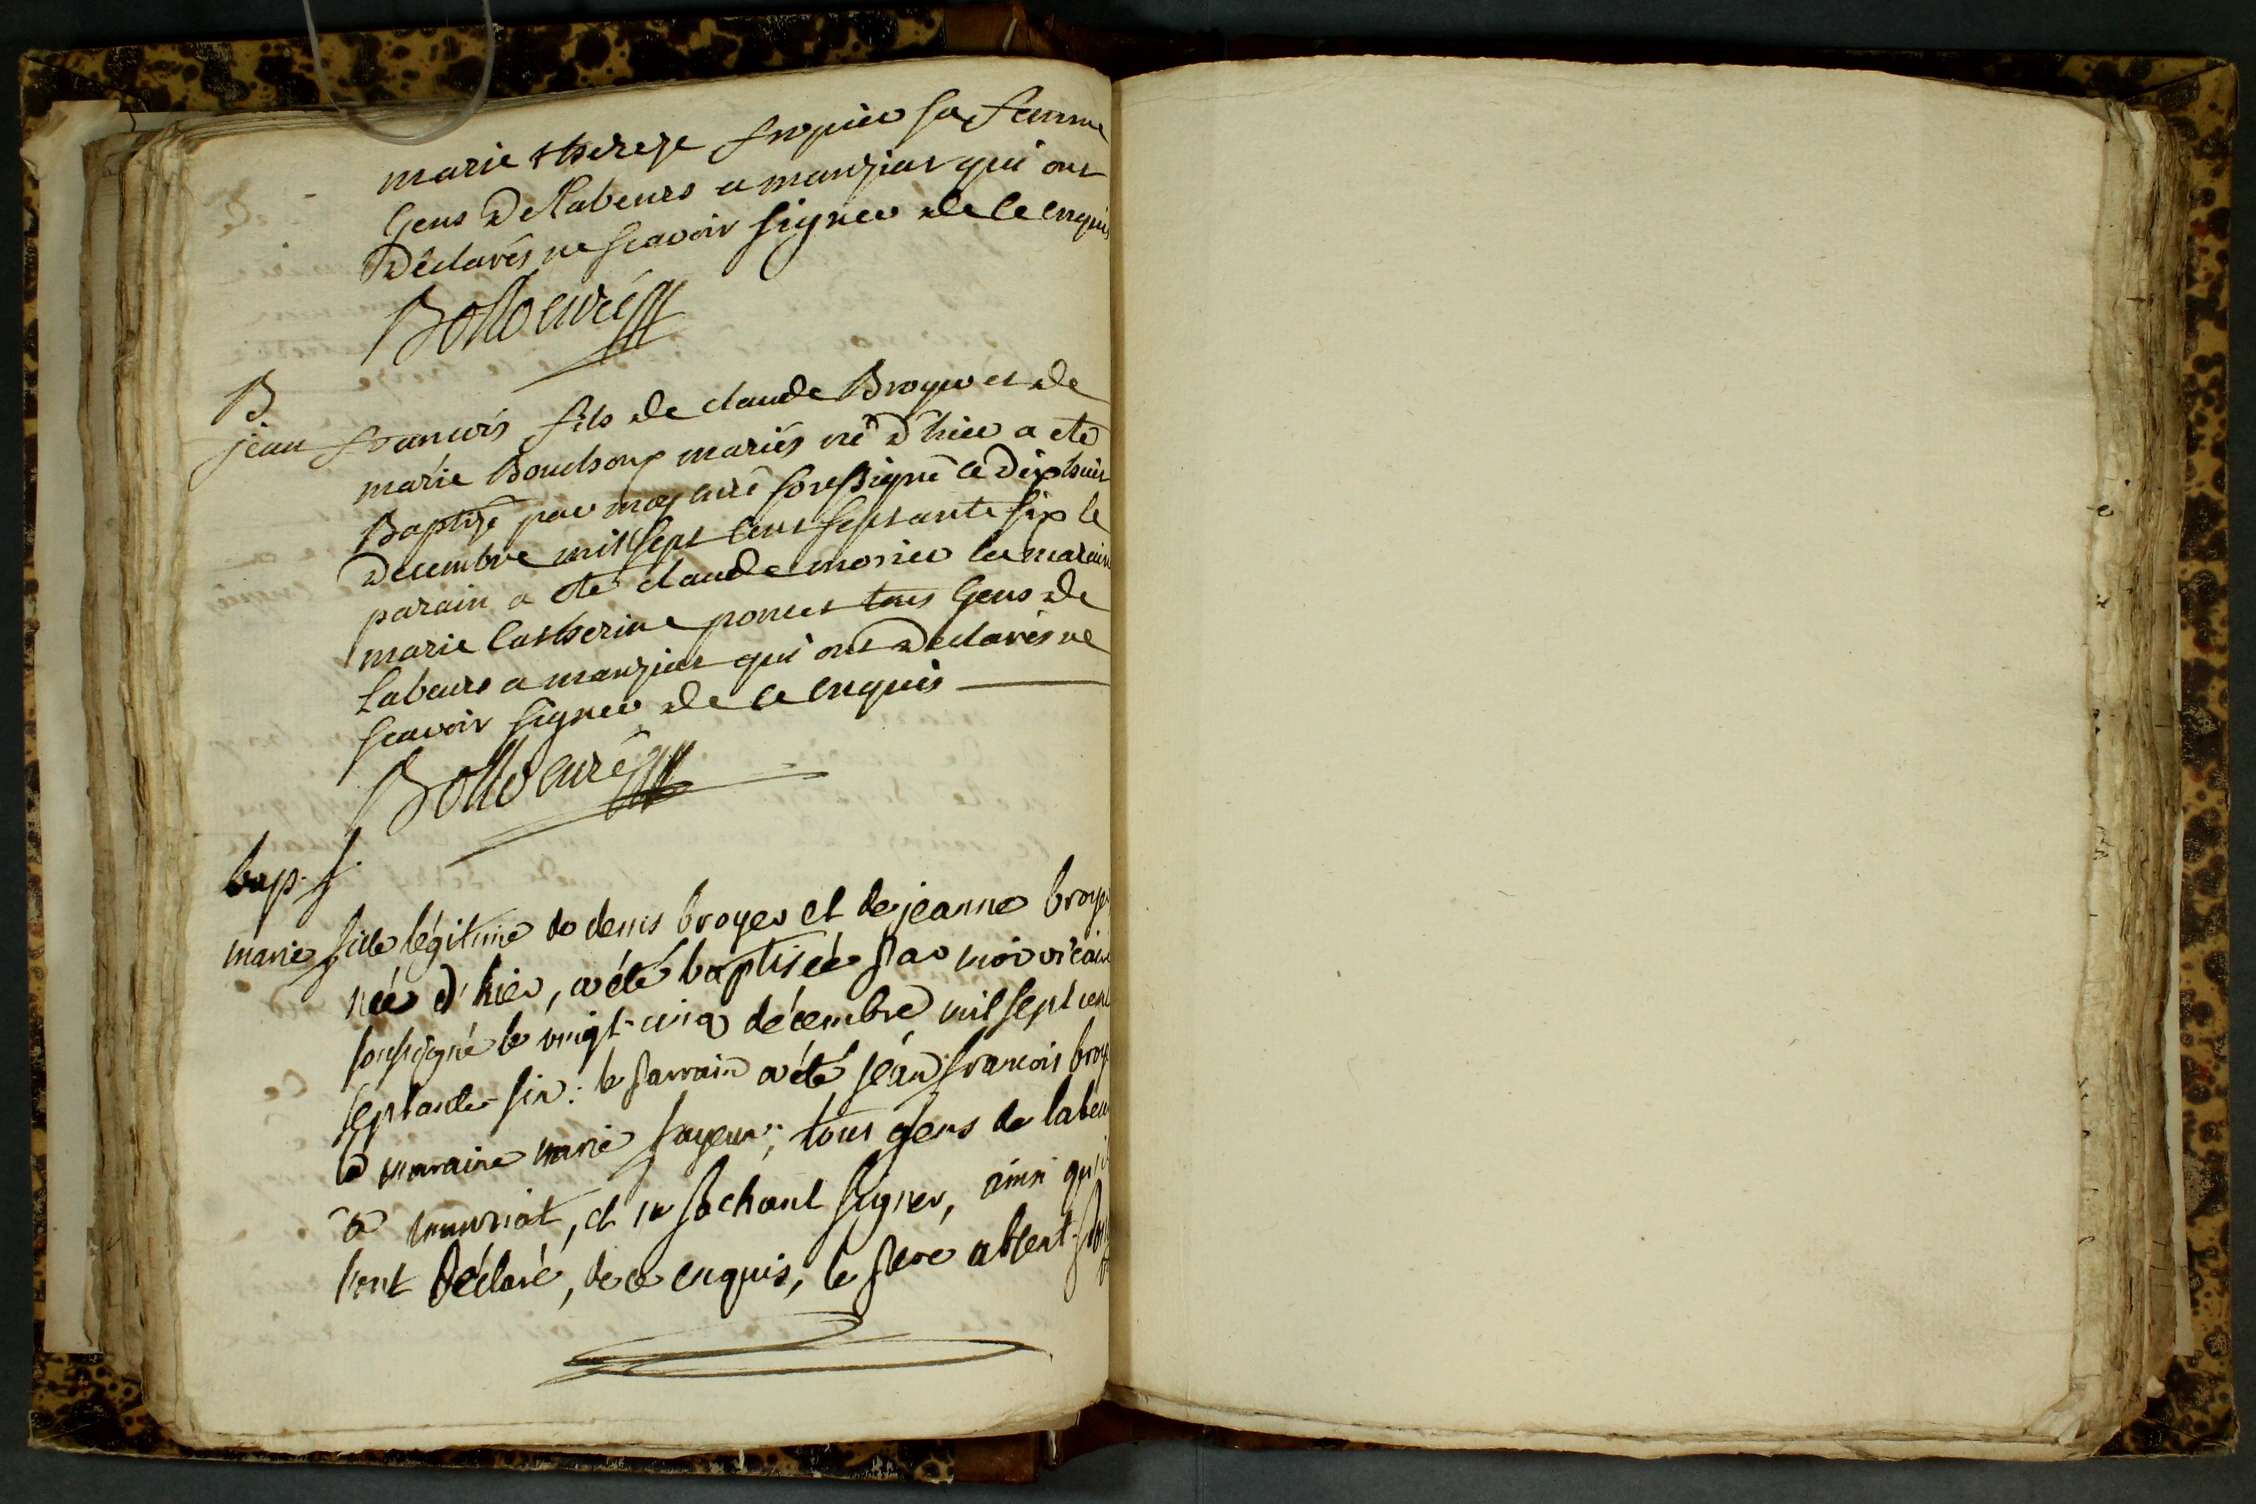 marie thereze fropier sa femme
gens de labeurs a manziat qui ont
déclarés ne scavoir signer de ce enquis
Bollo curé
B
jean francois fils de claude Broyer et de
marie Bouchoux mariés né d'hier a eté
Baptizé par moy curé soussigné le dix huit
decembre mil sept cent septante six le
parain a eté claude morier la maraine
marie Catherine poncet tous gens de
labeurs a manziat qui ont declarés ne
scavoir signer de ce enquis
Bollo curé
bap. f.
marie fille légitime de denis broyer et de jeanne broyer
née d'hier, a été baptisée par moi vicaire
soussigné le vingt-cinq décembre mil sept cent
septante six: le parrain a été jean francois broyer
la marraine marie fayeux; tous gens de labeur
à manziat, et ne sachant signer, ainsi qu'ils
l'ont déclaré, de ce enquis, le père absent.